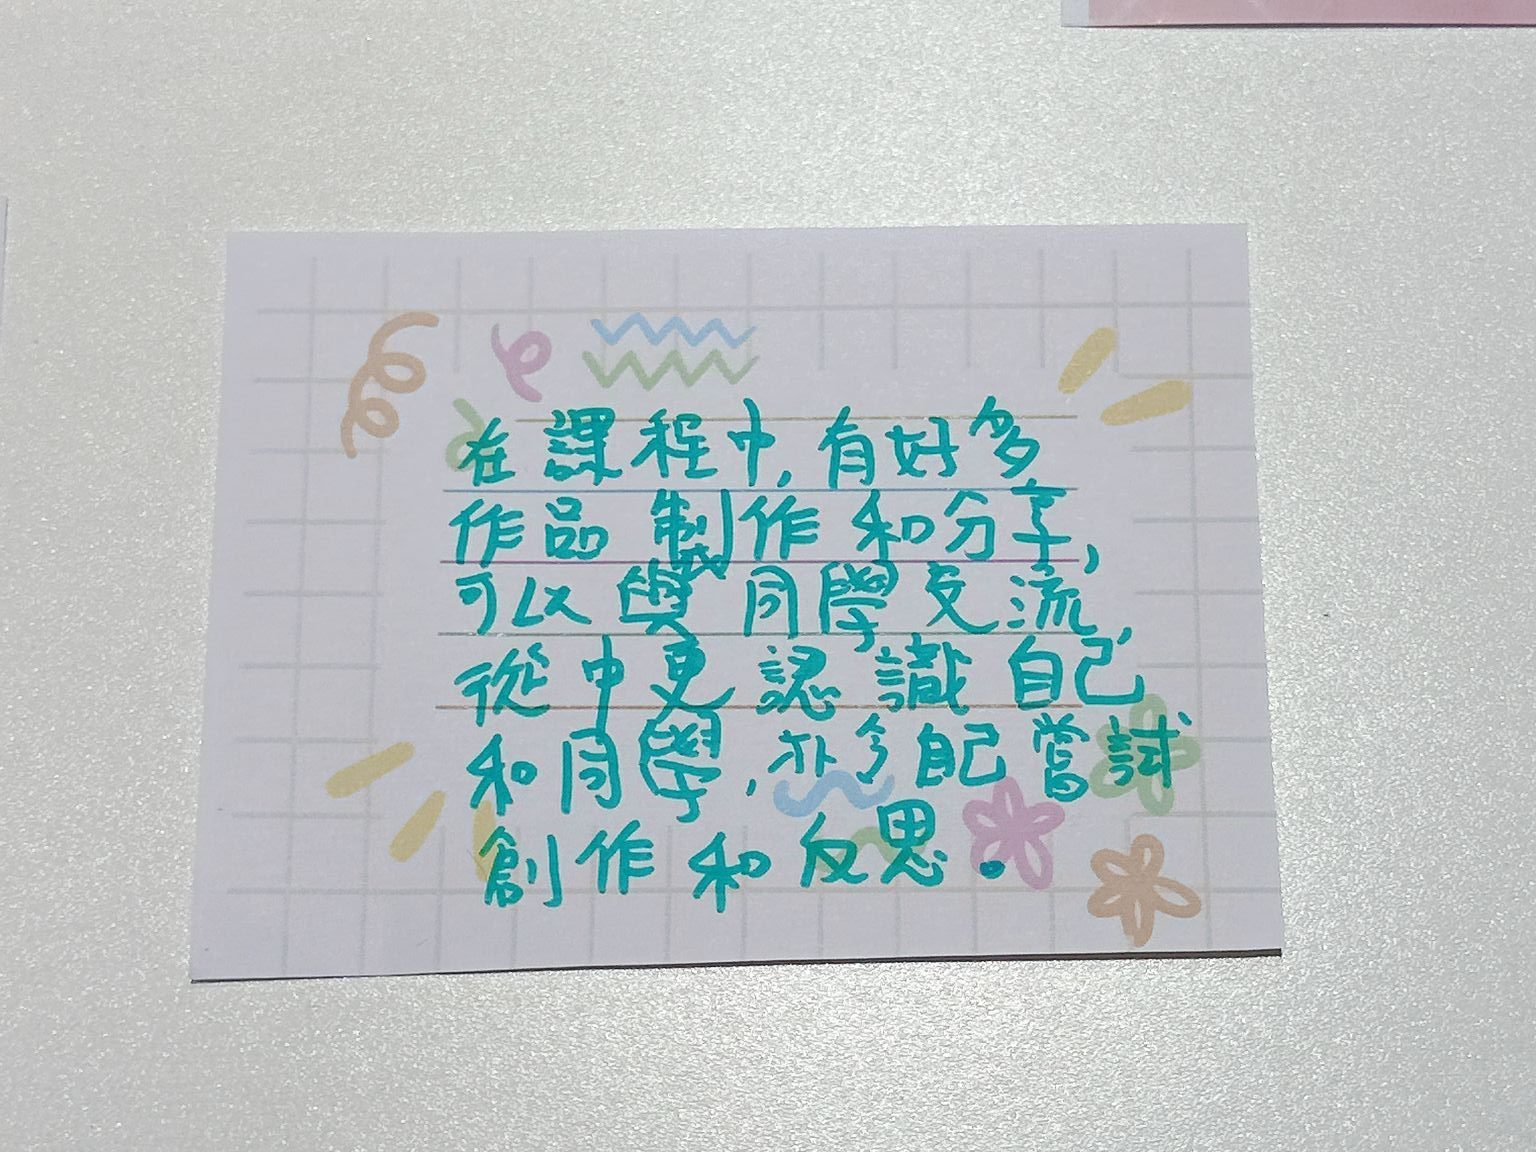 在課程中,有好多
作品製作和分享,
可以與同學交流,
從中更認識自己
和同學,亦令自己嘗試
創作和反思。